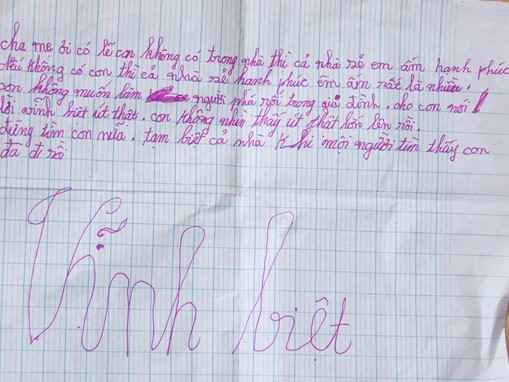 cha mẹ ơi có lẽ con không có trong nhà thì cả nhà sẽ em ấm hạnh phúc
nếu không có con thì cả nhà sẽ hạnh phúc êm ấm rất là nhiều.
con không muốn làm người phá rối trong gia đình. cho con nói 1
lời vĩnh biệt út thất. con không nhìn thấy út thất lớn lên rồi.
đừng tìm con nữa. tạm biệt cả nhà khi mọi người tìm thấy con
đã đi rồi
Vĩnh biệt